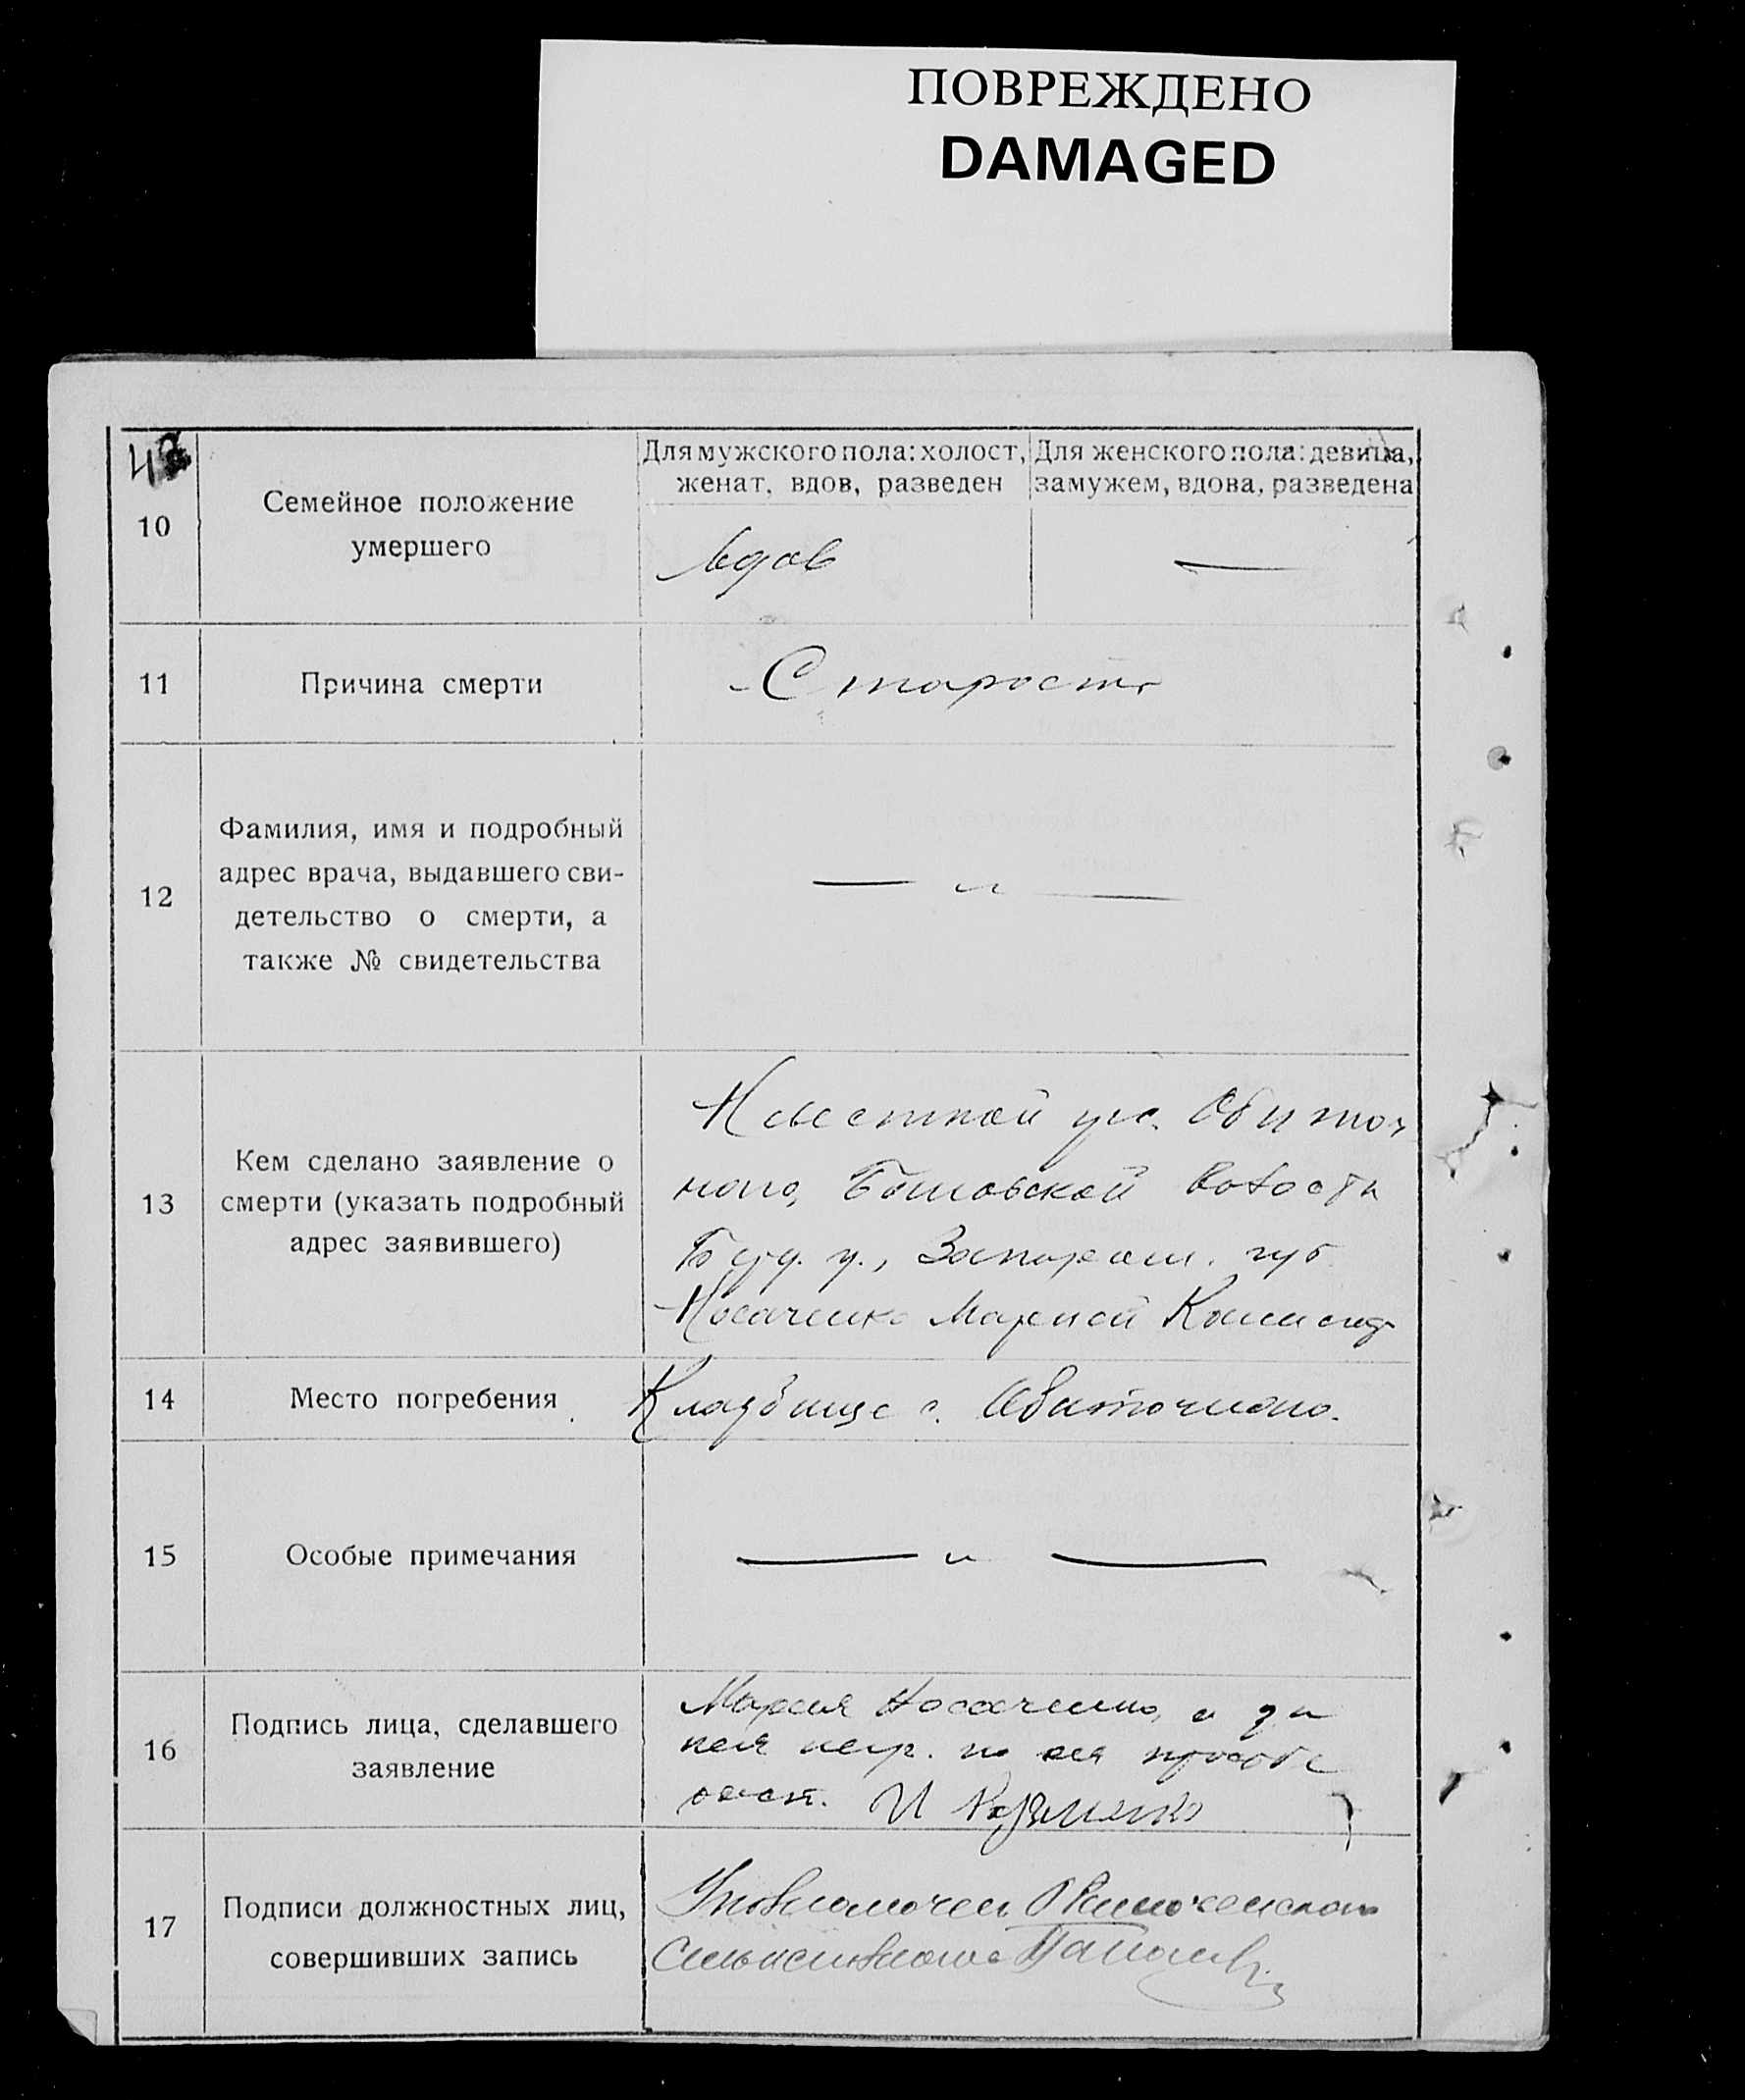 ПОВРЕЖДЕНО
DAMAGED
10
Семейное положение
умершего
Для мужского пола: холост,
женат, вдов, разведен
Для женского пола: девица,
замужем, вдова, разведена
вдов
—
11
Причина смерти
Старость
12
Фамилия, имя и подробный
адрес врача, выдавшего сви-
детельство о смерти, а
также № свидетельства
— " —
13
Кем сделано заявление о
смерти (указать подробный
адрес заявившего)
Невесткой Обиточ
ного, волости
Берд. у., Запорож. губ
Носаченко Марией
14
Место погребения
Кладбище с. Обиточного.
15
Особые примечания
— " —
16
Подпись лица, сделавшего
заявление
Мария Носаченко, а за
нея негр. по ея просьбе
И Кузменко
17
Подписи должностных лиц,
совершивших запись
Уповномочен Обиточенского